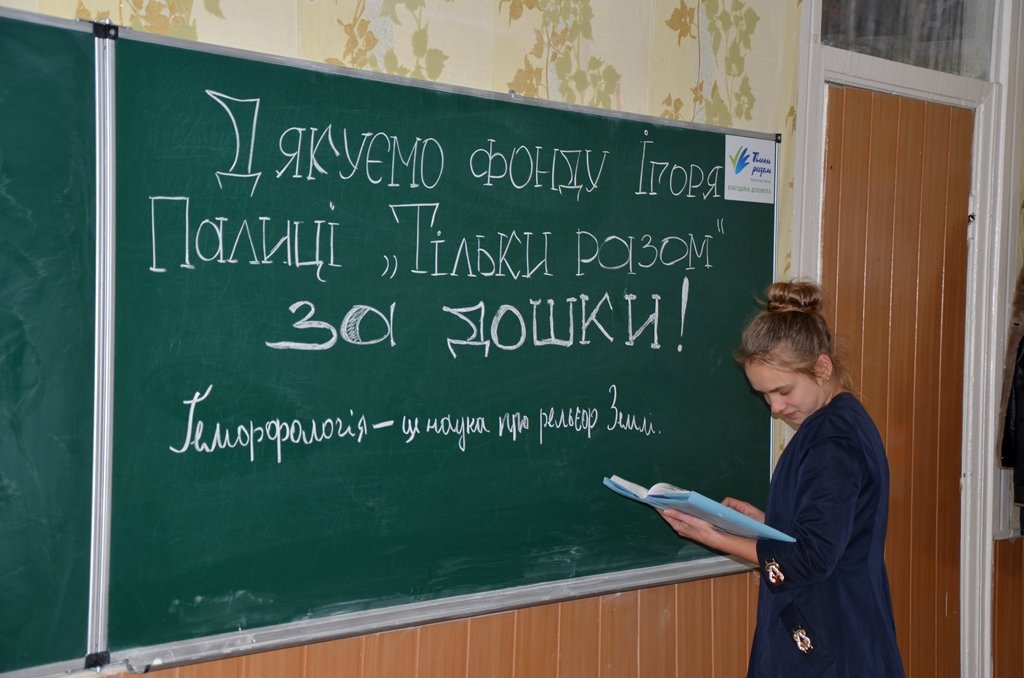 Дякуємо фонду Ігоря
Палиці „Тільки разом“
за дошки!
Геморфологія – це наука про рельєф Землі.
Тільки
разом
БЛАГОДІЙНА ДОПОМОГА